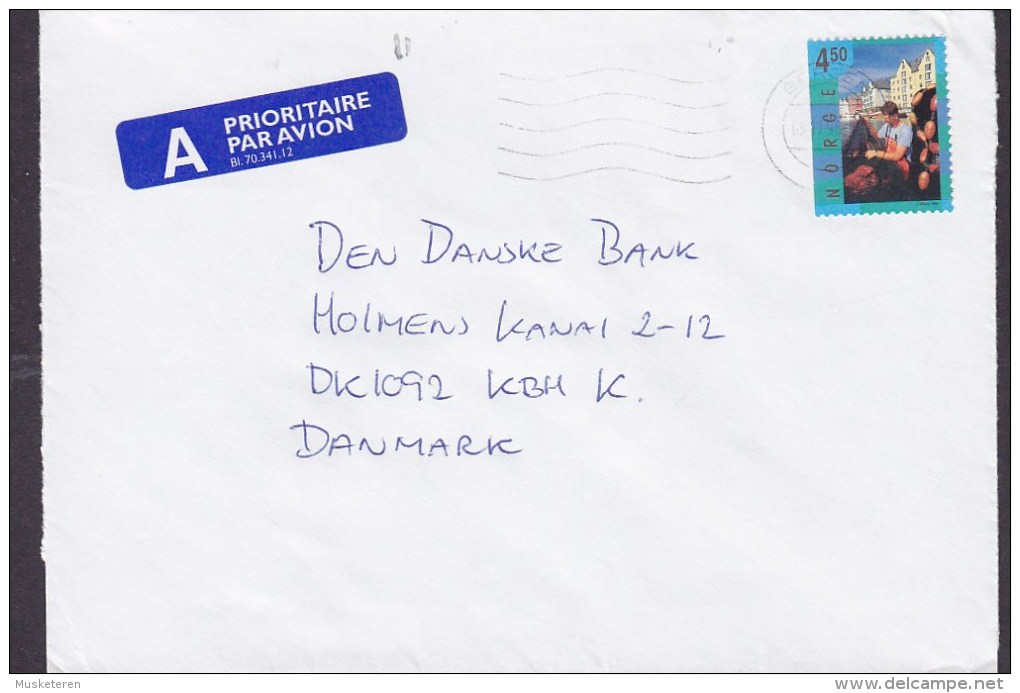 A PRIORITAIRE
PAR AVION
Bl. 70.341.12
4 50
NORGE
DEN DANSKE BANK
HOLMENS KANAL 2-12
DK1092 KBH K.
DANMARK
Musketeren
delcampe.net